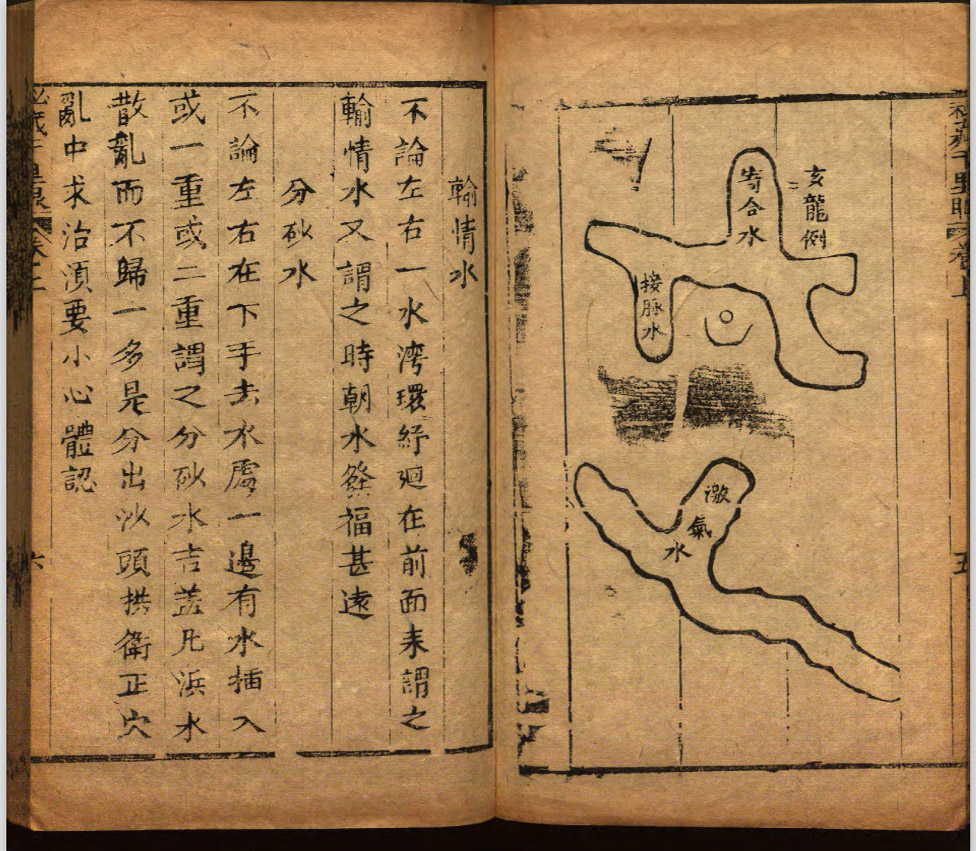 秘藏千里眼 卷上 五
亥龍例
寄合水
接脉水
激氣水
輸情水
不論左右一水湾環紆廻在前面来謂之
輸情水又謂之時朝水發福甚遠
分砂水
不論左右在下手去水處一邊有水插入
或一重或二重謂之分砂水吉盖凡浜水
散亂而不歸一多是分出沙頭拱衛正穴
亂中求治湏要小心體認
六